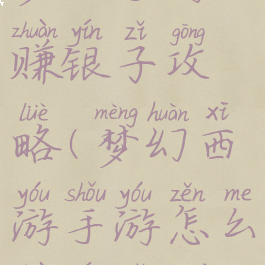 zhuàn yín zǐ gōng
赚银子攻
lüè mèng huàn xī
略(梦幻西
yóu shǒu yóu zěn me
游手游怎么